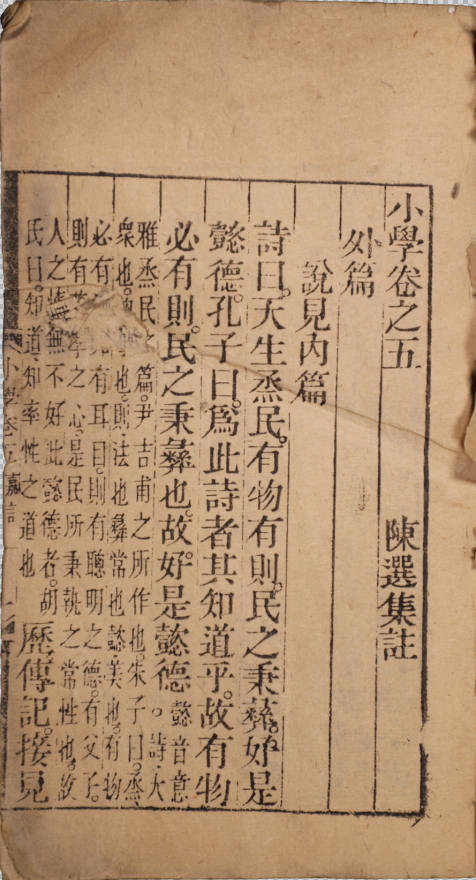 小學卷之五 陳選集註
外篇
說見內篇
詩曰。天生烝民。有物有則。民之秉彝。好是
懿德。孔子曰。爲此詩者其知道乎。故有物
必有則。民之秉彝也。故好是懿德
懿音意
。詩大
雅烝民之篇。尹吉甫之所作也。朱子曰。烝
衆也。也。則法也。彝常也。懿美也。有物
必有有耳目。則有聰明之德。有父子。
則有孝之心。是民所秉執之常性也。故
人之情無不好此懿德者。胡
氏曰。知道知率性之道也
歷傳記。接見
小學卷五 嘉言